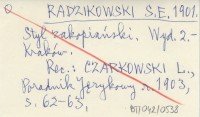 RADZIKOWSKI S.E, 1901.
Styl zakopiański. Wyd. 2.-
Kraków.
Rec.: CZARKOWSKI L.,
Poradnik Językowy s. 1903,
s. 62-63,
BTJ042/0538